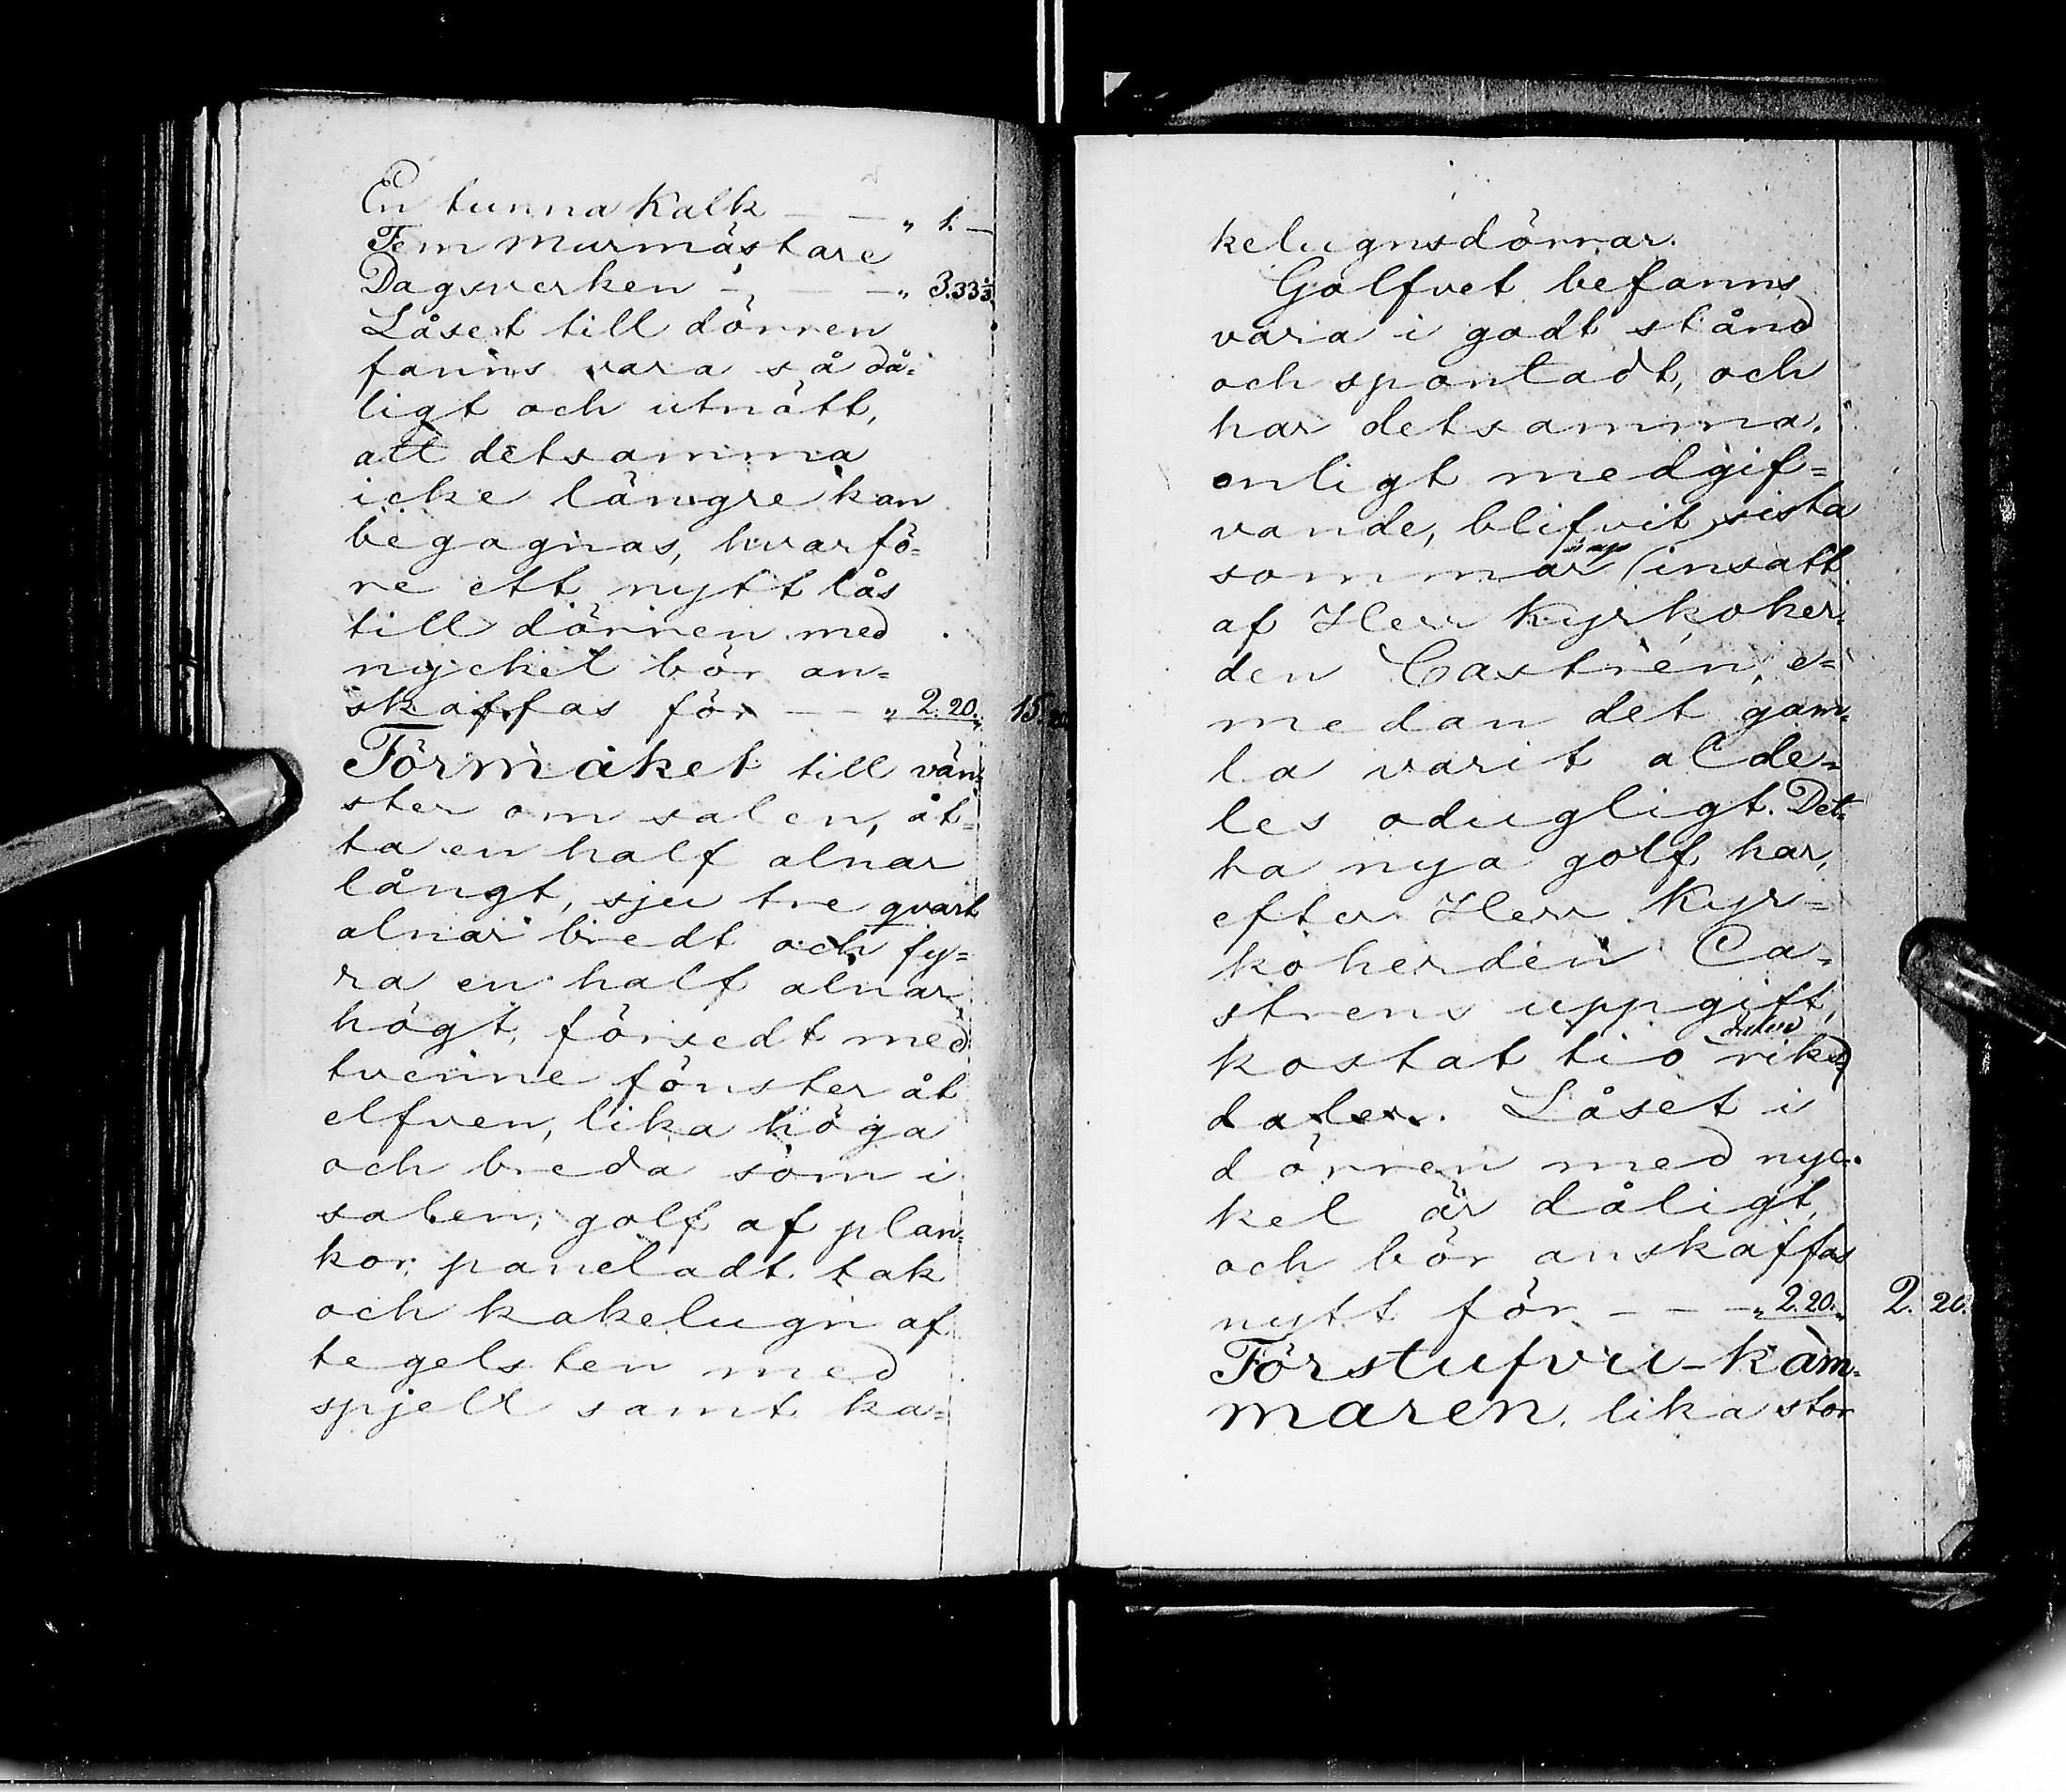 En tunna Kalk — — " 1. —
Fem Murmästare
Dagsverken — — — " 3.33⅓
Låset till dörren
fanns vara så då-
ligt och utnött,
att detsamma
icke längre kan
begagnas, hvarfö-
re ett nytt lås
till dörren med
nyckel bör an-
skaffas för — — " 2. 20. 15.
Förmaket till vän-
ster om salen, åt-
ta en half alnar
långt, sju tre qvart
alnar bredt och fy-
ra en half alnar
högt, försedt med
tvenne fönster åt
elfven, lika höga
och breda som i
salen; golf af plan-
kor, paneladt tak
och kakelugn af
tegelsten med
spjell samt ka-
kelugnsdörrar.
Golfvet befanns
vara i godt stånd
och spontadt, och
har detsamma,
enligt medgif-
vande, blifvit sista
sommar insatt
af Herr Kyrkoher-
den Castrén, e-
medan det gam-
la varit alde-
les odugligt. Det-
ta nya golf har,
efter Herr Kyr-
koherden Ca-
strens uppgift,
kostat tio riks
daler. Låset i
dörren med nyc-
kel är dåligt,
och bör anskaffas
nytt för — — — " 2. 20. 2. 20.
Förstufvu-kam-
maren, lika stor